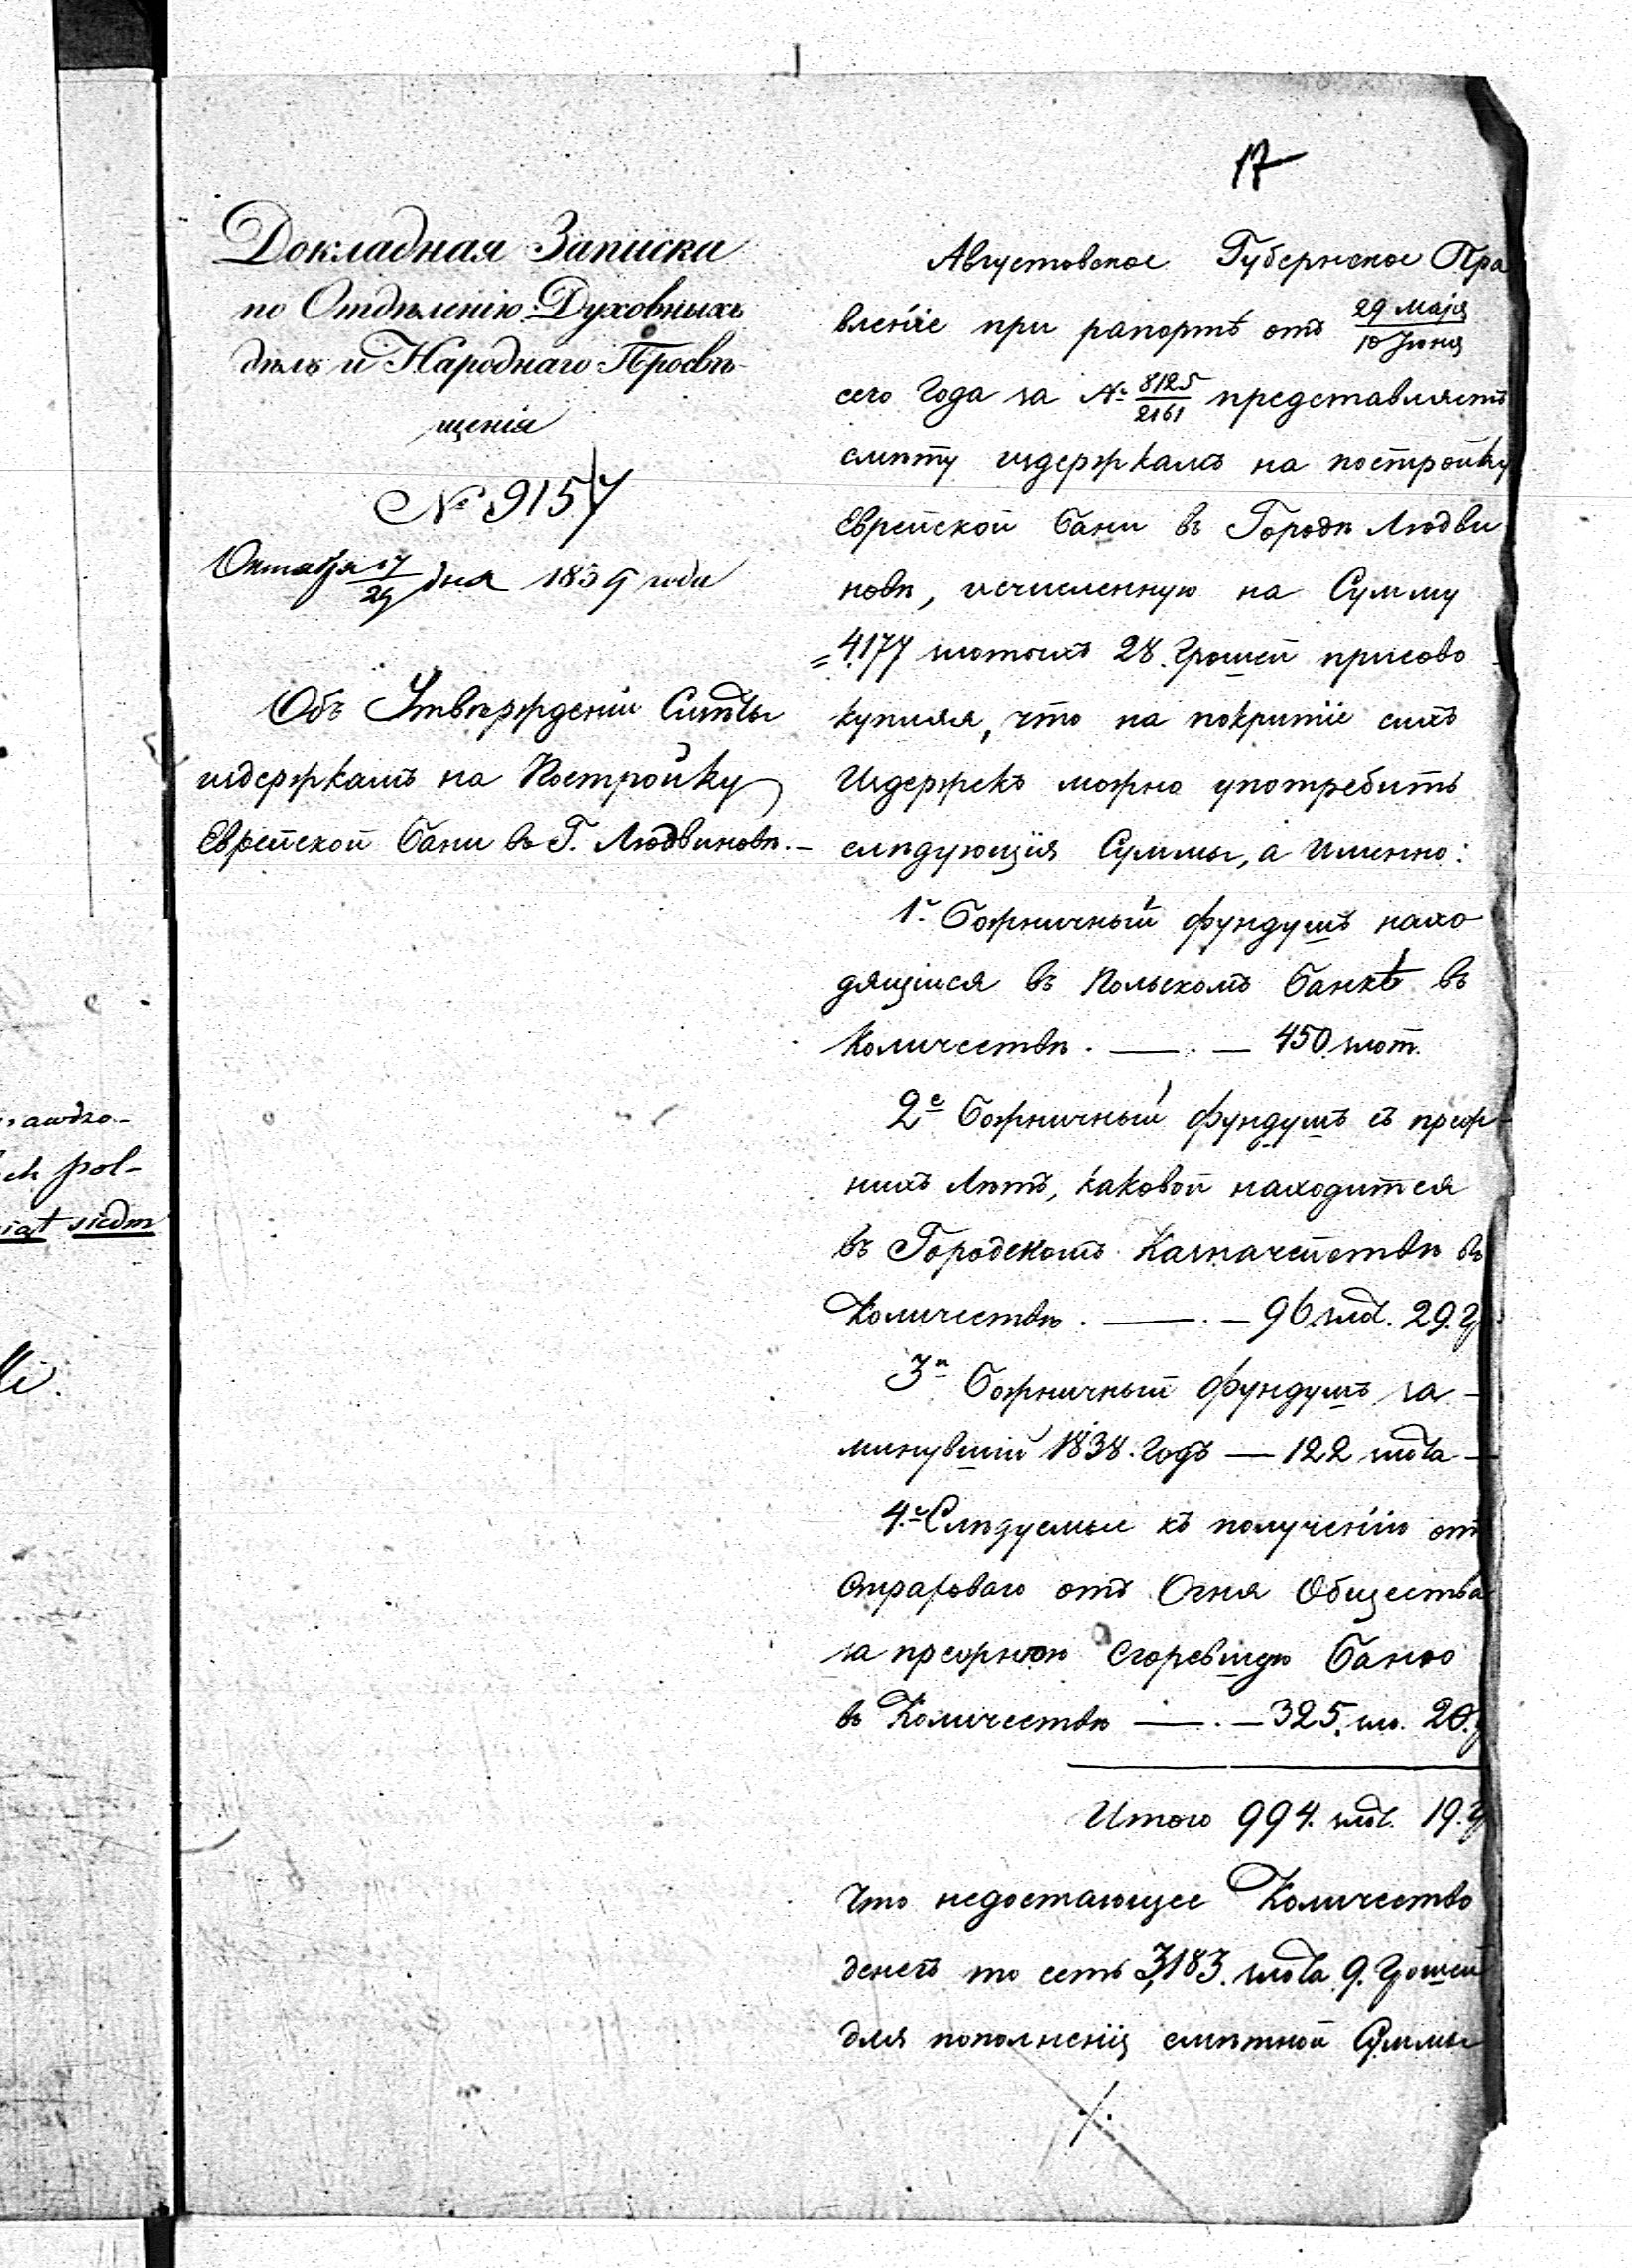 17
Докладная Записка
по Отдѣленію Духовныхъ
дѣлъ и Народнаго Просвѣ-
щенія
№ 9157
Октября 17/29 дня 1839 года
Объ Утвержденіи Смѣты
издержкамъ на Постройку
Еврейской Бани въ Г. Людвиновѣ.-
Августовское Губернское Пра
вленіе при рапортѣ отъ 29 Маія/10 Іюня
сего Года за № 8125/2161 представляетъ
смѣту издержкамъ на постройку
Еврейской Бани въ Городѣ Людви
новѣ, исчисленную на Сумму
=4177 злотыхъ 28. Грошей присово-
купляя, что на покритіе сихъ
Издержекъ можно употребить
слѣдующія Суммы, а Именно:
1е Божничный фундушъ нахо
дящійся въ Польскомъ Банкѣ въ
Количествѣ. — . — 450. злот.
2е Божничный фундушъ съ преж-
нихъ Лѣтъ, каковой находится
въ Городскомъ Казначействѣ въ
Количествѣ. — . — 96 злот. 29. г
3е Божничный фундушъ за -
минувшій 1838. Годъ — 122 злота —
4е Слѣдуемые къ полученію отъ
Страховаго отъ Огня Общества
за прежнюю Сгоревшую Баню
въ Количествѣ — . — 325. зло. 20. г
Итого 994. злот. 19. г
Что недостающее Количество
денегъ то есть 3183. злота 9. Грошей
для пополненія смѣтной Суммы
./.
awdzo-
ch pol-
iąt siedm